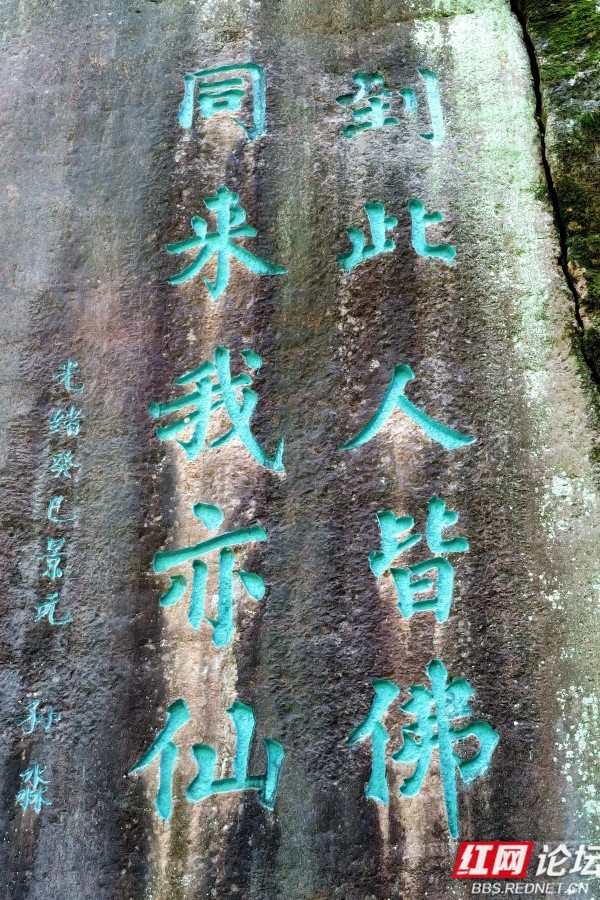 到此人皆佛
同来我亦仙
光绪癸巳景元
孙淼
红网论坛
BBS.REDNET.CN